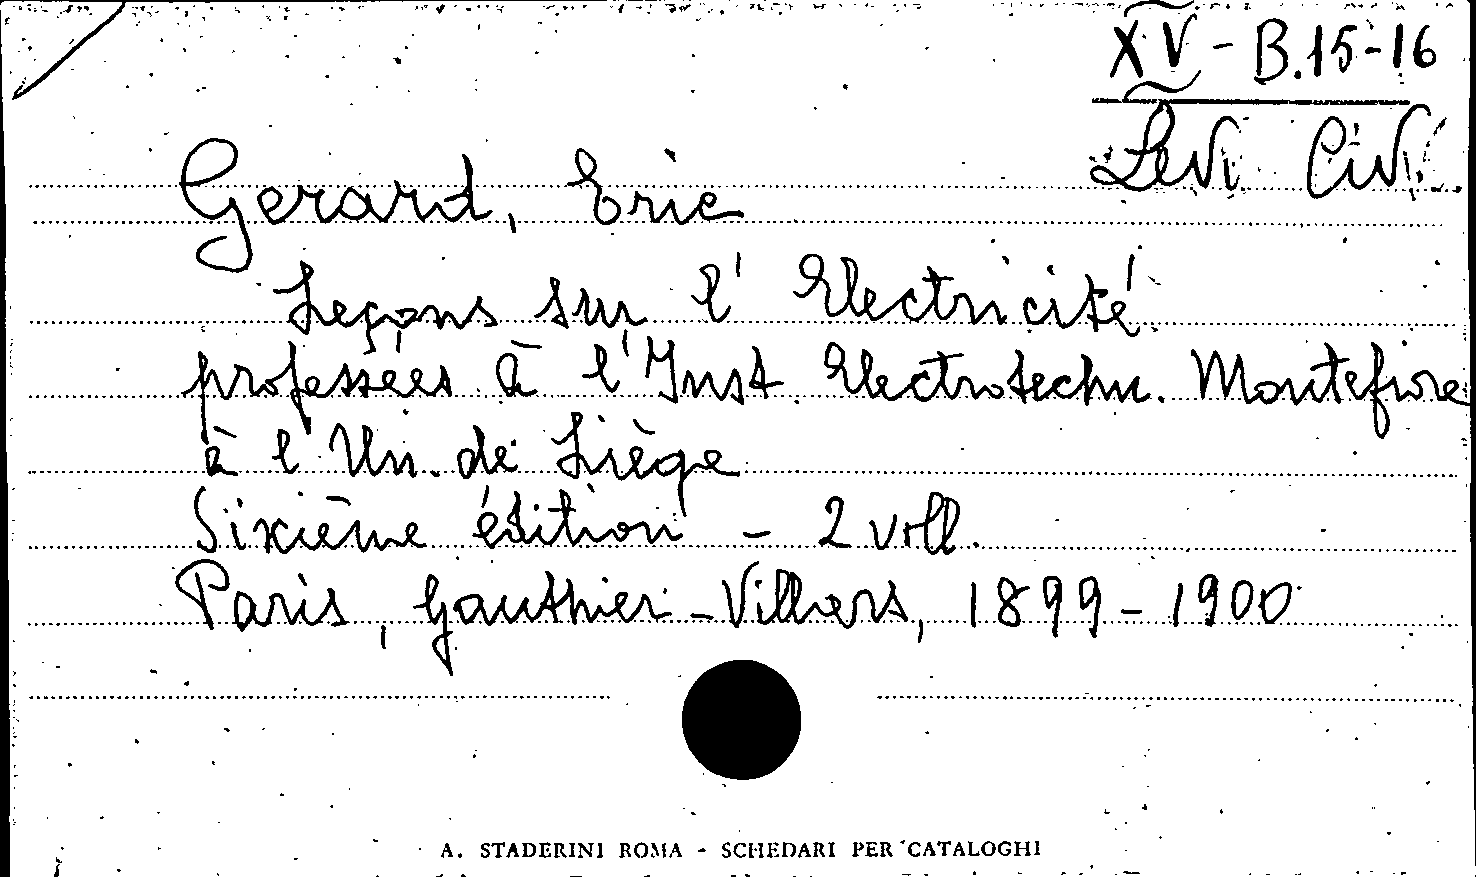 XV - B.15-16
Levi Civ.
Gerard, Eric
Leçons sur l' Electricité
professées à l'Inst. Electrotechn. Montefiore
à l'Un. de Liège
Sixième édition - 2 voll.
Paris, Gauthier-Villars, 1899-1900
A. STADERINI ROMA - SCHEDARI PER CATALOGHI